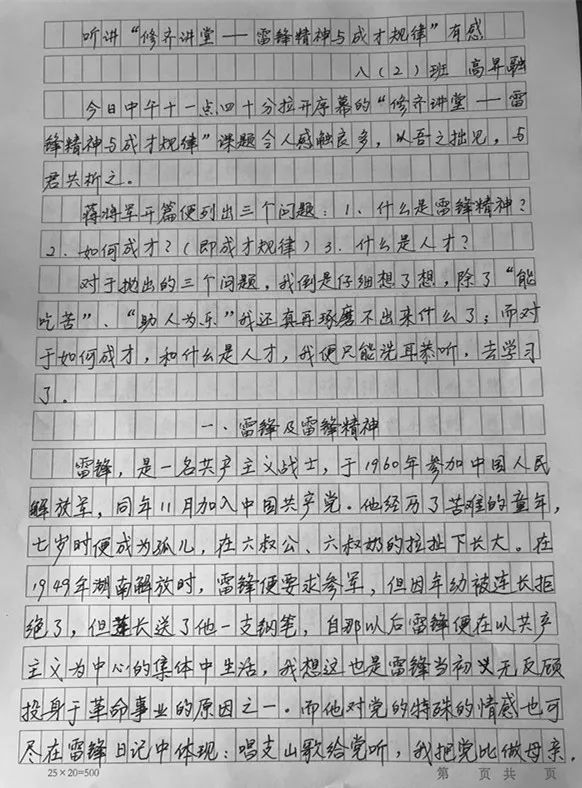 听讲“修齐讲堂——雷锋精神与成才规律”有感
八（2）班 高昇融
今日中午十一点四十分拉开序幕的“修齐讲堂——雷
锋精神与成才规律”课题令人感触良多，以吾之拙见，与
君共析之。
蒋将军开篇便列出三个问题：1、什么是雷锋精神？
2、如何成才？（即成才规律）3、什么是人才？
对于抛出的三个问题，我倒是仔细想了想，除了“能
吃苦”、“助人为乐”我还真再琢磨不出来什么了；而对
于如何成才，和什么是人才，我便只能洗耳恭听，去学习
了。
一、雷锋及雷锋精神
雷锋，是一名共产主义战士，于1960年参加中国人民
解放军，同年11月加入中国共产党。他经历了苦难的童年，
七岁时便成为孤儿，在六叔公、六叔奶的拉扯下长大。在
1949年湖南解放时，雷锋便要求参军，但因年幼被连长拒
绝了，但连长送了他一支钢笔，自那以后雷锋便在以共产
主义为中心的集体中生活，我想这也是雷锋当初义无反顾
投身于革命事业的原因之一。而他对党的特殊的情感也可
尽在雷锋日记中体现：唱支山歌给党听，我把党比做母亲.
25×20=500 第 页 共 页